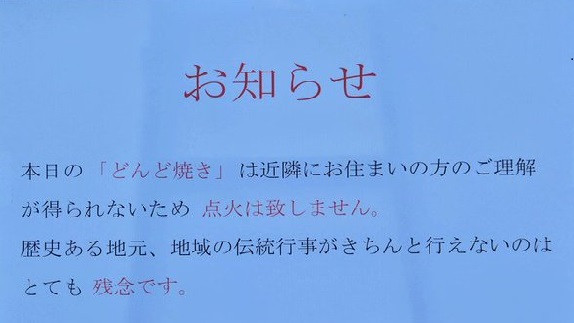 お知らせ
本日の「どんど焼き」は近隣にお住まいの方のご理解
が得られないため 点火は致しません。
歴史ある地元、地域の伝統行事がきちんと行えないのは
とても 残念です。